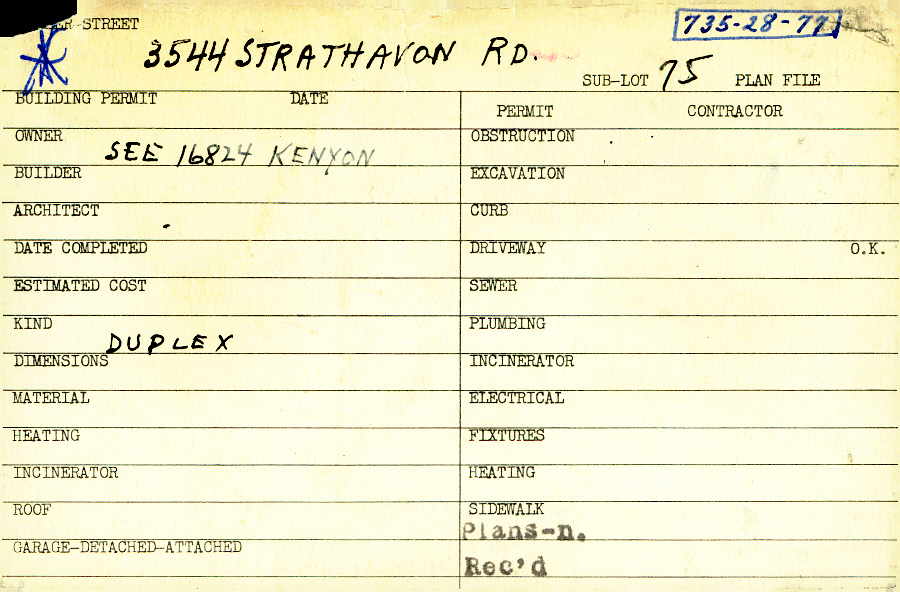 STREET 735-28-77
3544 STRATHAVON RD.
SUB-LOT 75 PLAN FILE
BUILDING PERMIT DATE
PERMIT CONTRACTOR
OWNER SEE 16824 KENYON
OBSTRUCTION
BUILDER
EXCAVATION
ARCHITECT
CURB
DATE COMPLETED
DRIVEWAY O.K.
ESTIMATED COST
SEWER
KIND DUPLEX
PLUMBING
DIMENSIONS
INCINERATOR
MATERIAL
ELECTRICAL
HEATING
FIXTURES
INCINERATOR
HEATING
ROOF
SIDEWALK
Plans-n.
GARAGE-DETACHED-ATTACHED
Rec'd